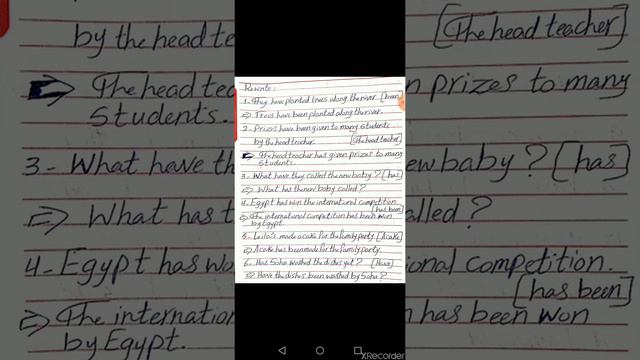 by the head te [The head teacher]
⇒ The head tea n prizes to many
students.
3- What have th new baby? [has]
⇒ What has t alled?
4- Egypt has wo ional competition.
[has been]
⇒ The internation n has been won
by Egypt.
Rewrite:
1- They have planted trees along the river. [been]
⇒ Trees have been planted along the river.
2- Prizes have been given to many students
by the head teacher. [The head teacher]
⇒ The head teacher has given prizes to many
students.
3- What have they called the new baby? [has]
⇒ What has the new baby called?
4- Egypt has won the international competition.
[has been]
⇒ The international competition has been won
by Egypt.
5- Leila's made a cake for the family party. [A cake]
⇒ A cake has been made for the family party.
6- Has Soha wathed the dishes yet? [Have]
⇒ Have the dishes been wathed by Soha?
XRecorder